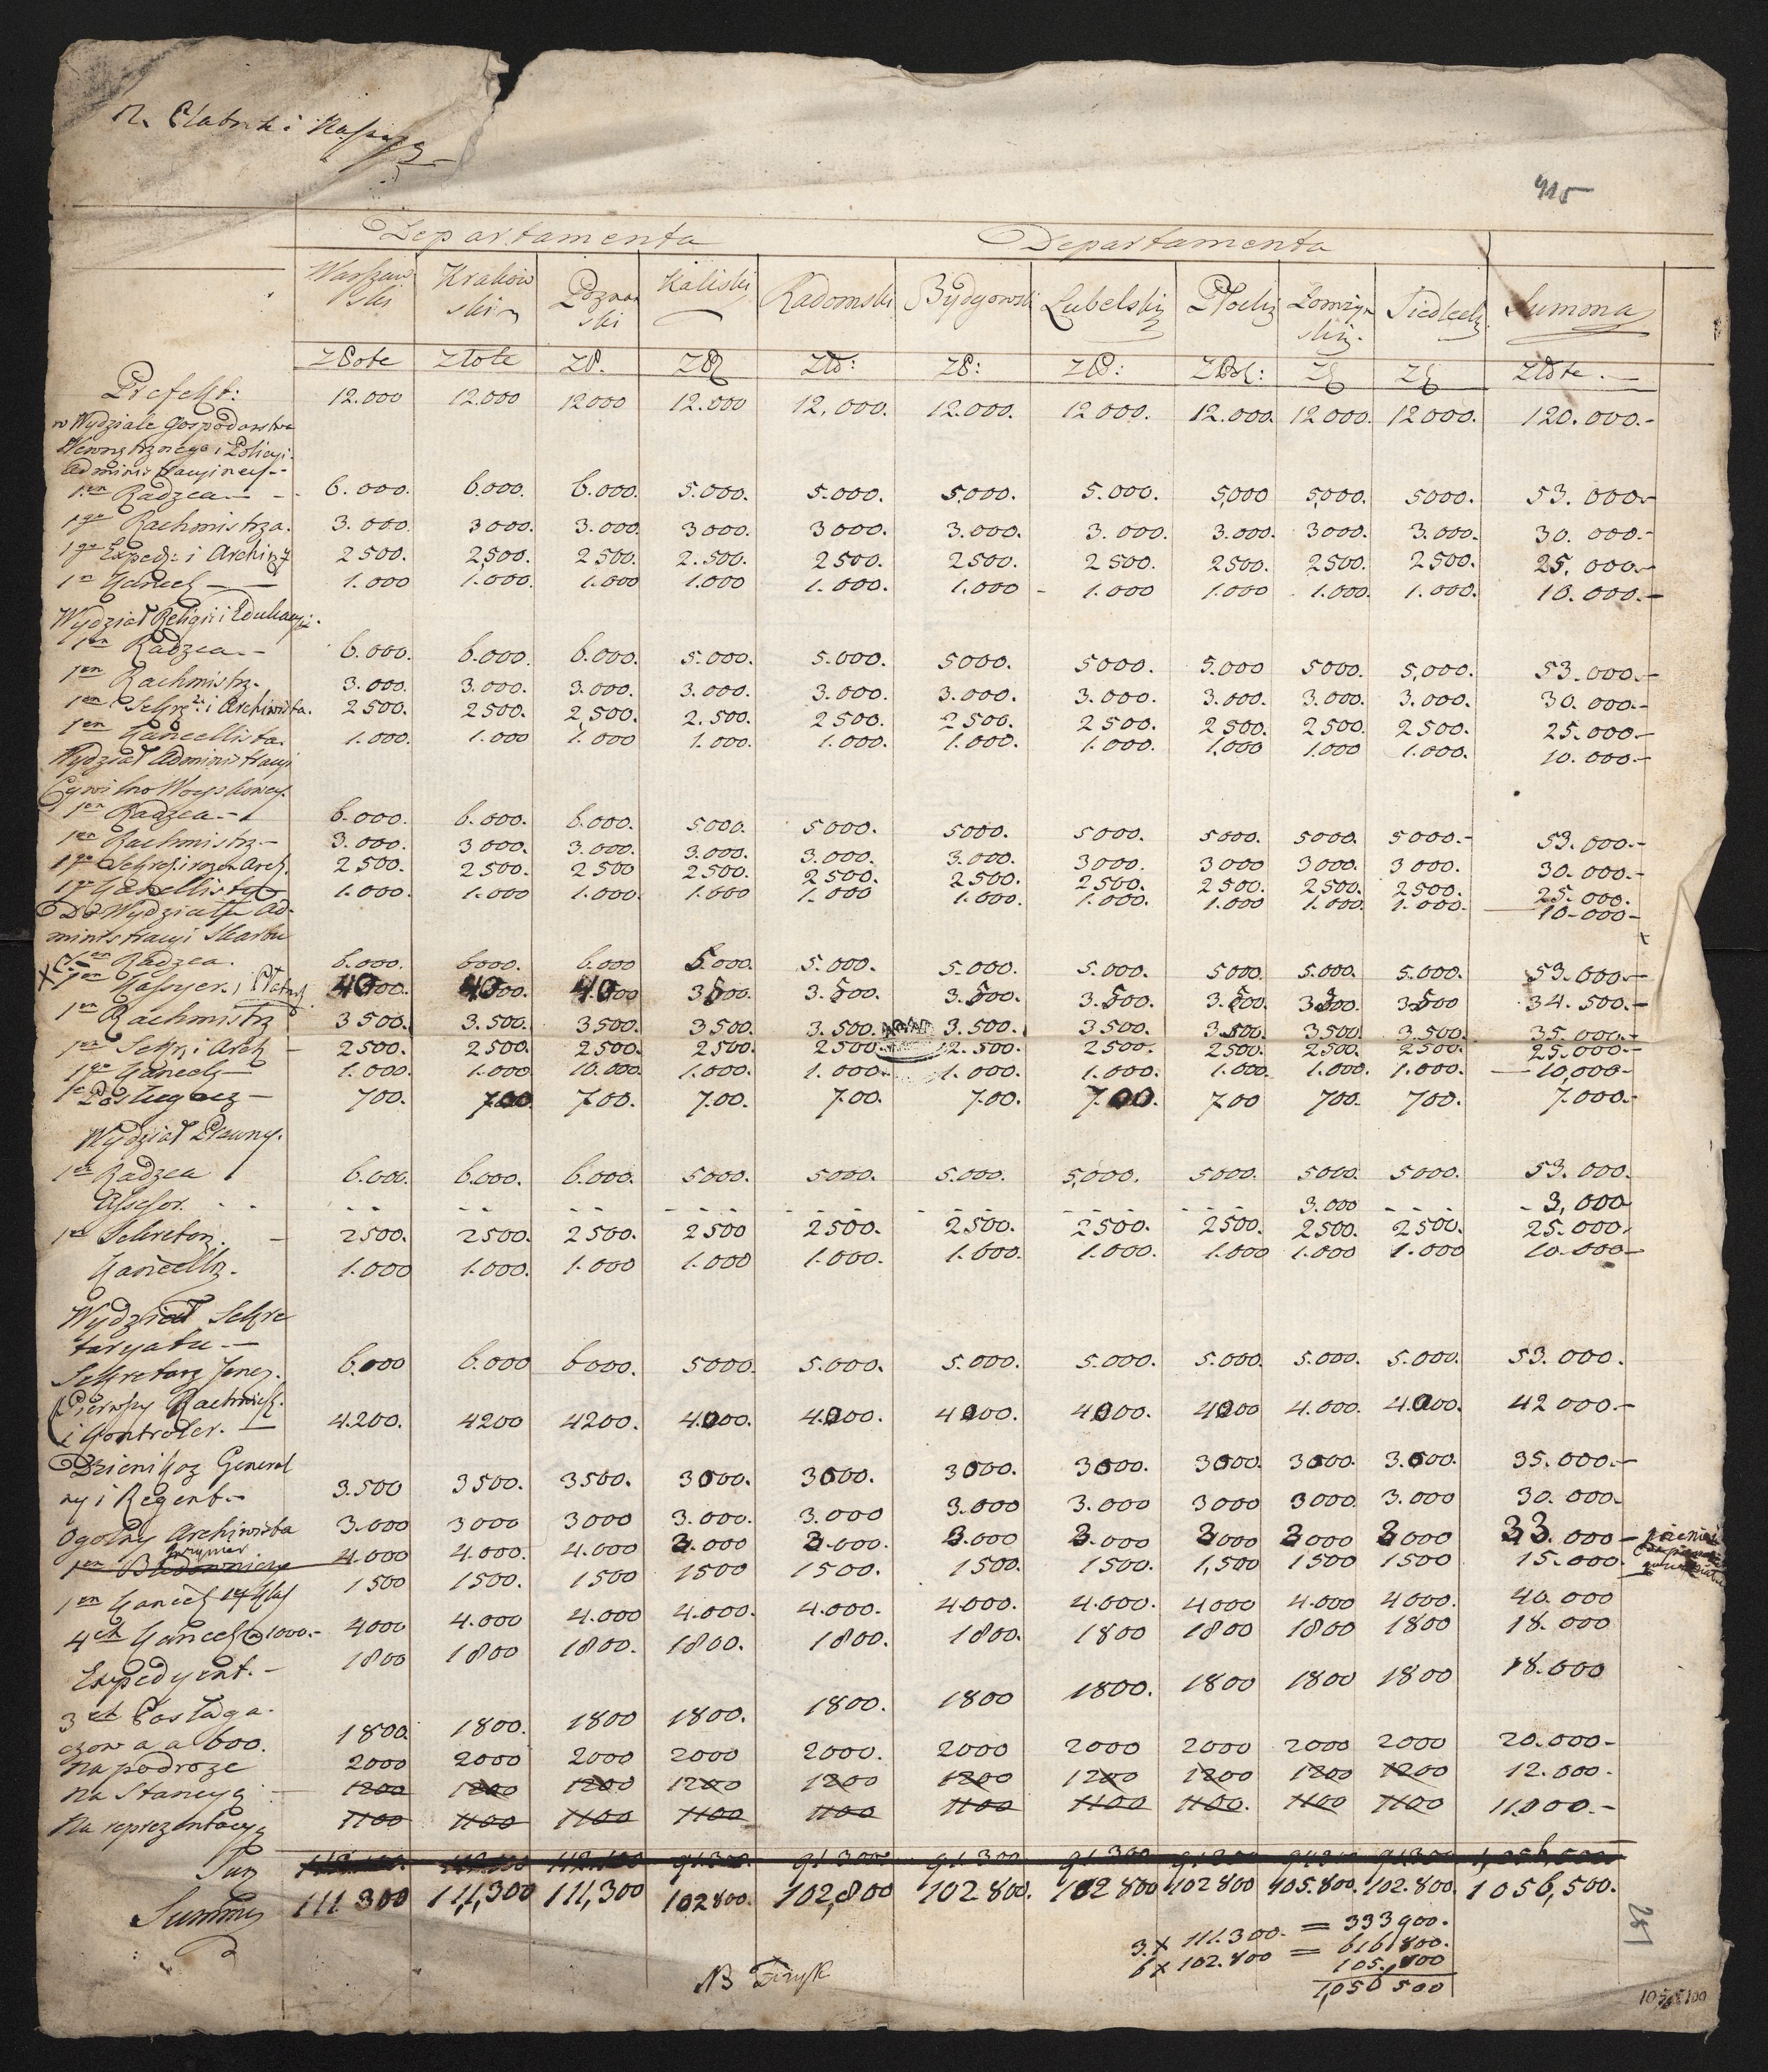 915
Departamenta Departamenta
Warszaw Krakow Poznań Kaliski Radomski Bydgowski Lubelski Płocki Łomżyń Siedlecki Summa
ski ski ski ski
Złote Złote Zł. Zł Zł: Zł: Zł: Zł: Zł Zł Złote
Prefekt: 12.000 12.000 12000 12.000 12,000. 12.000. 12000. 12.000. 12000. 12000. 120.000.-
w Wydziale Gospodarstwa
Wewnętrznego i Policyi
Administracyiney
1en Radzca 6.000. 6.000. 6.000. 5.000. 5.000. 5.000. 5.000. 5,000 5,000. 5000. 53.000
1go Rachmistrza. 3.000. 3000. 3.000. 3000. 3000. 3.000. 3.000. 3.000. 3000. 3.000. 30.000.-
1go Exped: i Archiw 2500. 2,500. 2500. 2.500. 2500. 2500. 2500. 2500. 2500. 2500. 25.000.
1n Kancel 1.000 1.000. 1.000 1.000 1.000. 1.000 1.000 1.000 1.000. 1.000. 10.000.-
Wydział Religii i Edukacyi.
1en Radzca.- 6.000. 6.000. 6.000. 5.000. 5.000. 5000. 5000. 5.000 5000. 5,000. 53.000.-
1en Rachmistrz. 3.000. 3.000. 3.000. 3.000. 3.000. 3.000. 3.000. 3.000. 3.000. 3.000. 30.000.-
1en Sekr: i Archiwista. 2500. 2500. 2,500. 2.500. 2500. 2500. 2500. 2500. 2500. 2500. 25.000.-
1en Kancellista. 1.000. 1.000 1.000 1.000. 1.000. 1.000. 1.000. 1.000 1.000 1.000. 10.000.-
Wydział Administracyi
Cywilno Woyskowey.
1en Radzca.- 6.000. 6.000. 6.000. 5.000. 5000. 5000. 5000. 5000. 5000. 5000.- 53.000.-
1en Rachmistrz- 3.000. 3000. 3.000. 3.000. 3.000. 3.000. 3000. 3000 3000. 3000. 30.000.-
2500. 2500. 2500 2500. 2500. 2500. 2500. 2500. 2500. 2500. 25.000.
1go Kancellistę 1.000. 1.000 1.000. 1.000 1.000 1.000. 1.000. 1.000 1.000. 1.000. 10.000-
Do Wydziału Ad-
ministracyi Skarbu
1en Radzca. 6.000. 6000. 6.000 5.000. 5.000. 5.000. 5.000. 5000. 5.000. 5.000. 53.000.-
1en Kassyer i Płatn 4000. 4000. 4000 3500. 3.500. 3.500. 3.500. 3.500. 3500. 3500 34.500.-
1en Rachmistrz 3500. 3.500. 3500. 3500. 3.500. 3.500. 3500. 3.500. 3500. 3.500. 35.000.-
1en Sekr i Arch 2500. 2500. 2500. 2500. 2500 2.500. 2500. 2500. 2500. 2500. 25.000.-
1go Kancel 1.000. 1.000 10.000. 1.000. 1.000. 1.000. 1.000. 1.000. 1.000. 1.000. 10,000-
1e Posługacz - 700. 700. 700. 700. 700. 700. 700. 700 700. 700. 7.000.-
Wydział Prawny.
1en Radzca 6.000. 6.000. 6.000. 5000. 5000. 5.000. 5,000. 5000. 5000 5000. 53.000.
Assesor. 3.000 3,000
1en Sekretarz. 2500. 2500. 2500. 2500 2500. 2500. 2500. 2500. 2500. 2500. 25.000,
Kancellis. 1.000 1.000. 1.000 1.000 1.000. 1.000. 1.000. 1.000 1.000 1.000 10.000-
Wydział Sekre
taryatu.-
Sekretarz Jener. 6.000 6.000 6000. 5000. 5.000. 5.000. 5.000. 5.000. 5.000. 5.000. 53.000.
Pierwszy Rachmistrz.
i Kontroler. 4.200. 4200 4200. 4.000. 4.000. 4000. 4000. 4000 4.000. 4.000. 42000.-
Dzienikarz General
ny i Regent.- 3.500 3500. 3500. 3000. 3000. 3000. 3000. 3000. 3000. 3.000. 35.000.-
Ogolny Archiwista 3.000 3000 3000 3.000. 3.000 3.000 3.000. 3000 3000. 3.000 30.000.
1en Budowniczy 4.000 4.000. 4.000 3.000. 3.000. 3.000 3.000 3000 3000 3000 33.000-
1en Kancel 1500 1500. 1500 1500 1500. 1500. 1500. 1,500 1500 1500 15.000.
4ch Kancel @ 1000.- 4000 4.000 4.000 4.000. 4.000. 4000. 4.000. 4000 4.000 4000. 40.000
Expedyent.- 1800 1800 1800. 1800. 1800. 1800. 1800 1800 1800 1800 18.000
3ch Posługa.
czow a a 600. 1800. 1800. 1800 1800. 1800. 1800 1800. 1800 1800 1800 18.000
Na podroze 2000 2000 2000 2000 2000. 2000 2000 2000 2000 2000 20.000-
Na Stancyą 1200 1200 1200 1200 1200 1200 1200 1200 1200 1200 12.000.
Na reprezentacyą 1100 1100 1100 1100 1100 1100 1100 1100. 1100 1100 11.000.-
Summy 111.300 111,300 111,300 102800. 102,800 102800. 102800 102800 105.800. 102.800. 1056,500.
3 x 111.300. = 333900.
6 x 102.800 = 616800.
105,800
1,056 500
NB
281